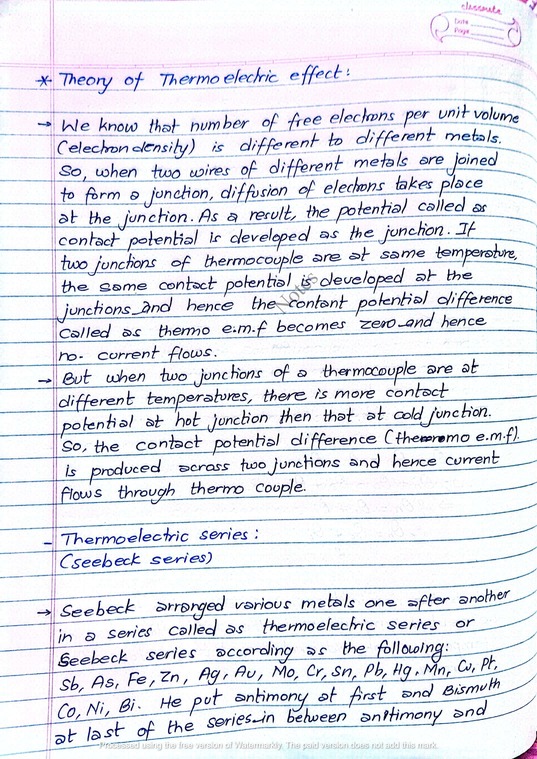 classmate
Date
Page
* Theory of Thermoelectric effect:
→ We know that number of free electrons per unit volume
(electron density) is different to different metals.
So, when two wires of different metals are joined
to form a junction, diffusion of electrons takes place
at the junction. As a result, the potential called as
contact potential is developed as the junction. If
two junctions of thermocouple are at same temperature,
the same contact potential is developed at the
junctions and hence the contant potential difference
called as thermo e.m.f becomes zero and hence
no. current flows.
→ But when two junctions of a thermocouple are at
different temperatures, there is more contact
potential at hot junction then that at cold junction.
So, the contact potential difference (thermo e.m.f).
is produced across two junctions and hence current
flows through thermo couple.
- Thermoelectric series:
(seebeck series)
→ Seebeck arranged various metals one after another
in a series called as thermoelectric series or
Seebeck series according as the following:
Sb, As, Fe, Zn, Ag, Au, Mo, Cr, Sn, Pb, Hg, Mn, Cu, Pt,
Co, Ni, Bi. He put antimony at first and Bismuth
at last of the series in between antimony and
Notes
Processed using the free version of Watermarkly. The paid version does not add this mark.